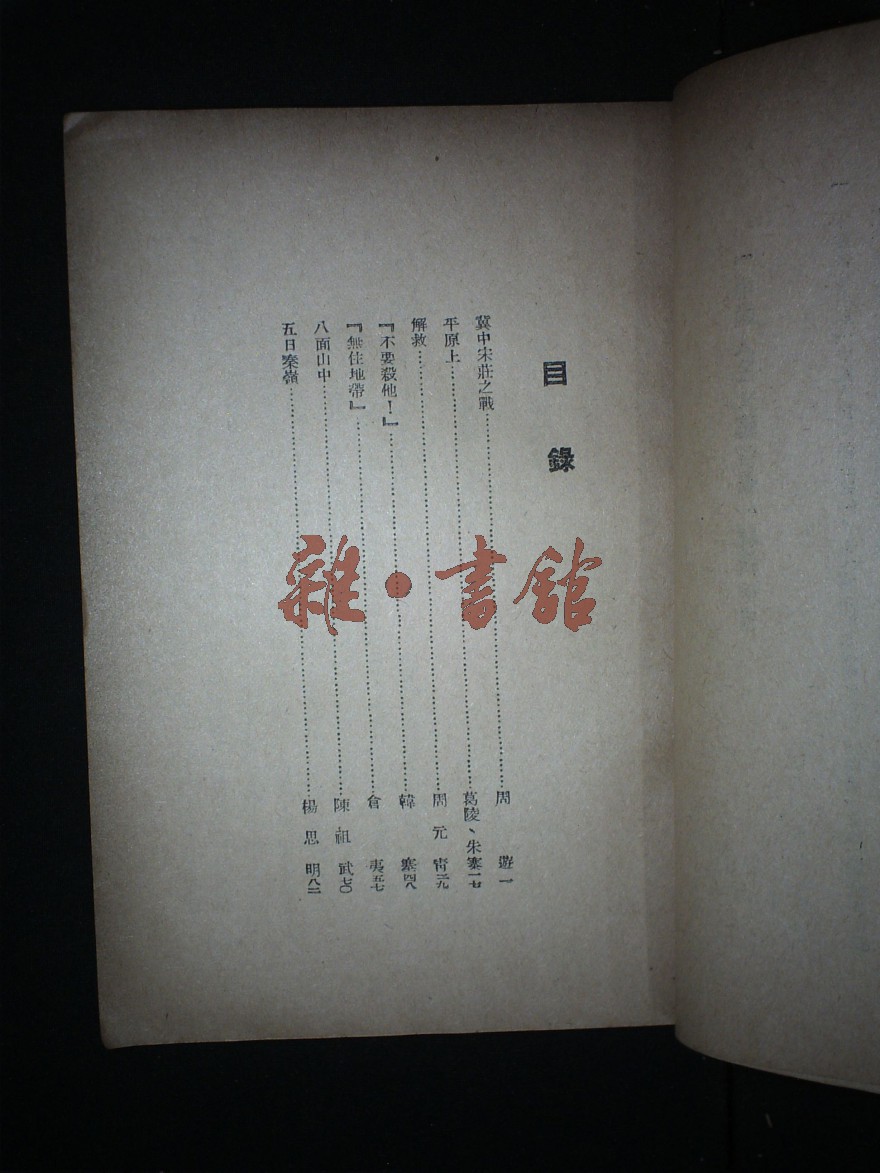 目錄
冀中宋莊之戰……周遊一
平原上……葛陵、朱寨一七
解救……周元青二九
『不要殺他！』……韓塞四八
『無住地帶』……倉夷五七
八面山中……陳祖武七〇
五日秦嶺……楊思明八二
雜·書館